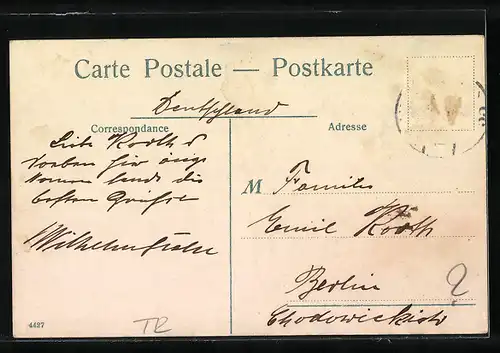 Carte Postale — Postkarte
Deutschland
Correspondance
Adresse
Liebe Kooths
soeben hier
sende die
besten Grüsse
Wilhelm
M Familie
Emil Kooth
Berlin
Chodowieckistr
?
4437
TR